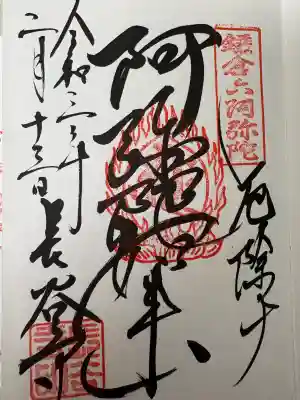 鎌倉六阿弥陀
厄除け
阿弥陀如来
令和三年
二月十三日
長谷寺